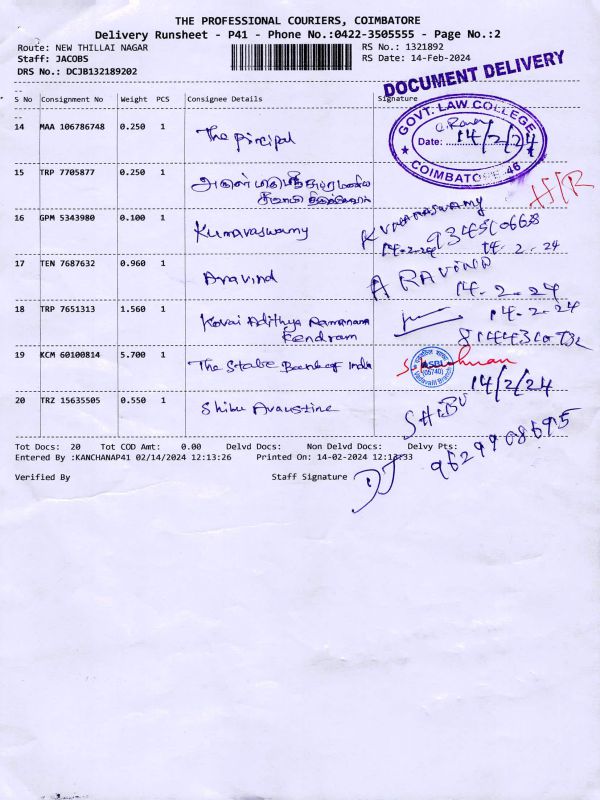 THE PROFESSIONAL COURIERS, COIMBATORE
Delivery Runsheet - P41 - Phone No.:0422-3505555 - Page No.:2
Route: NEW THILLAI NAGAR
RS No.: 1321892
Staff: JACOBS
RS Date: 14-Feb-2024
DRS No.: DCJB132189202
DOCUMENT DELIVERY
S No Consignment No Weight PCS Consignee Details Signature
14 MAA 106786748 0.250 1 The pincipal
GOVT. LAW COLLEGE
Date: 14/2/24
COIMBATORE - 46
15 TRP 7705877 0.250 1
H/R
16 GPM 5343980 0.100 1 Kumaraswamy KUMARASWAMY
14-2-24 9345106638 14.2.24
17 TEN 7687632 0.960 1 Aravind ARAVIND
14-2-24
18 TRP 7651313 1.560 1 Kovai Adithya Ramanana 14-2-24
Kendram
19 KCM 60100814 5.700 1 The State Bank of India
14/2/24
20 TRZ 15635505 0.550 1 Shibu Avaustine SHIBU
9629908695
Tot Docs: 20 Tot COD Amt: 0.00 Delvd Docs: Non Delvd Docs: Delvy Pts:
Entered By :KANCHANAP41 02/14/2024 12:13:26 Printed On: 14-02-2024 12:13:33
Verified By Staff Signature